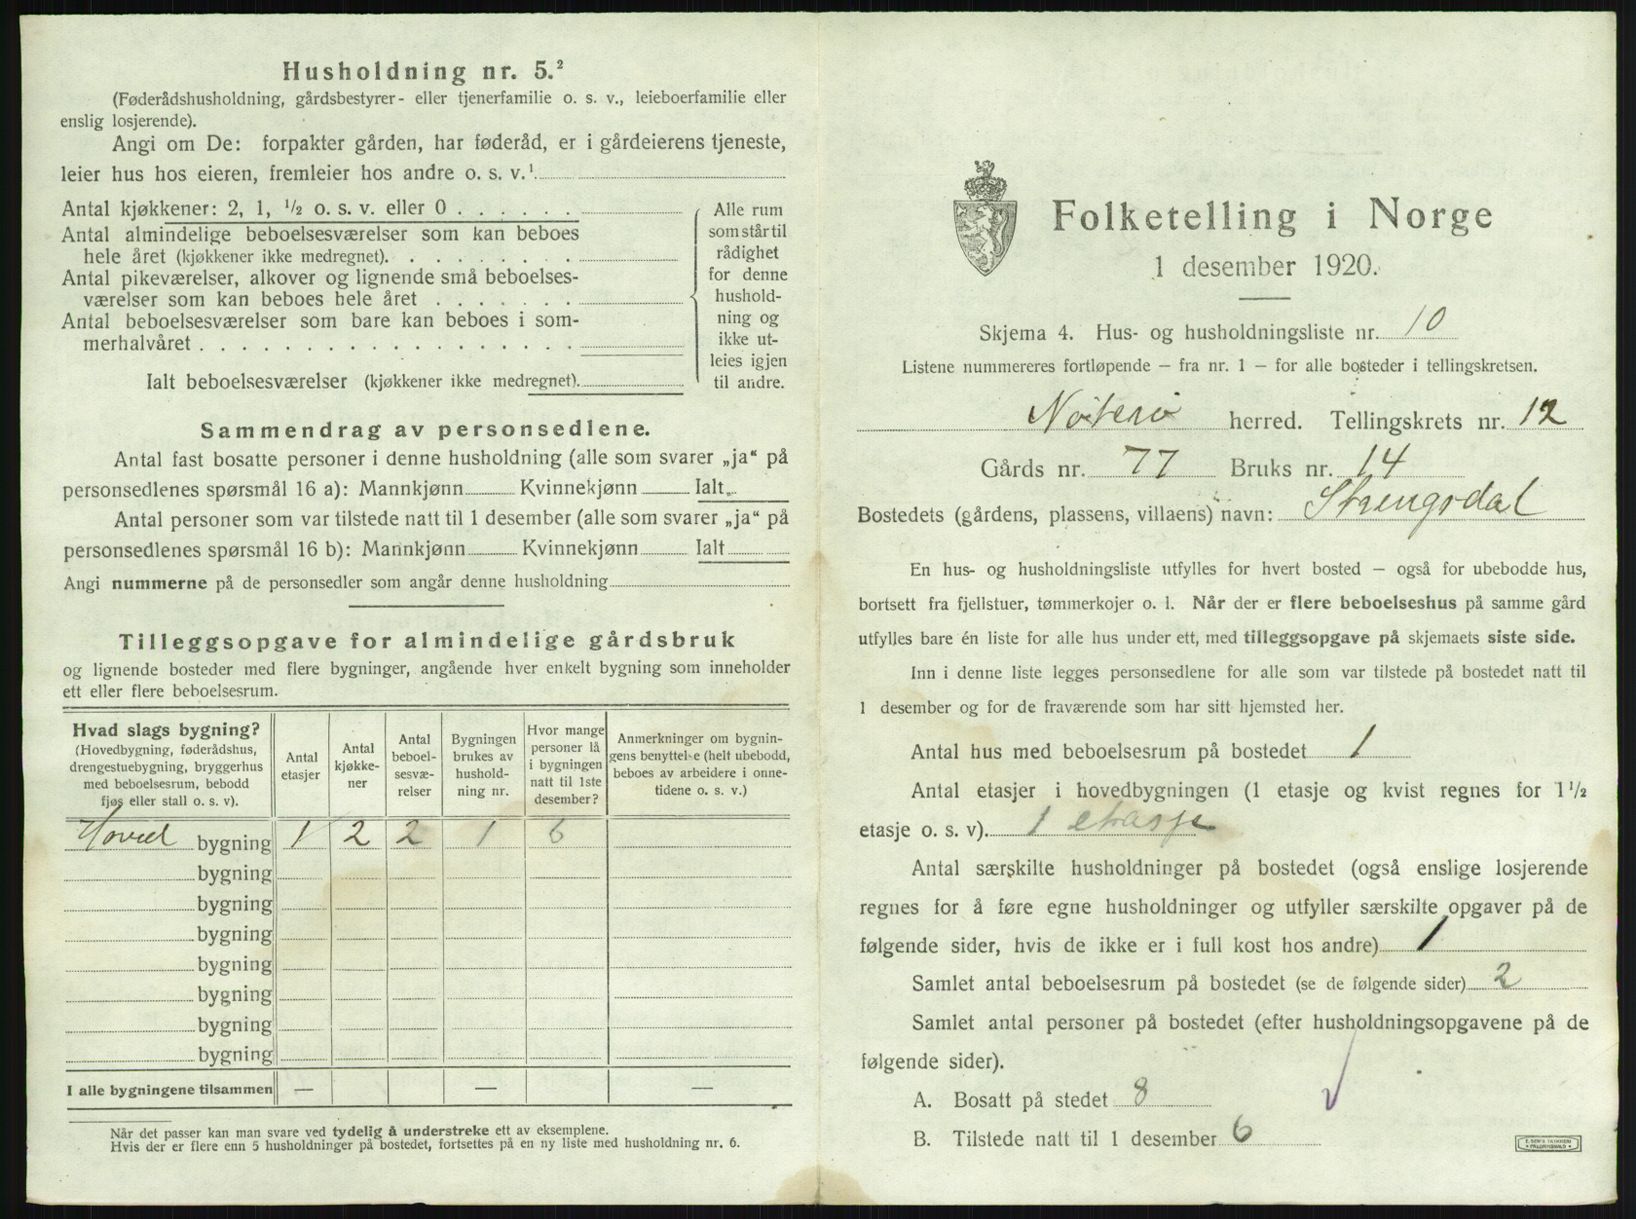 Husholdning nr. 5.²
(Føderådshusholdning, gårdsbestyrer- eller tjenerfamilie o. s. v., leieboerfamilie eller
enslig losjerende).
Angi om De: forpakter gården, har føderåd, er i gårdeierens tjeneste,
leier hus hos eieren, fremleier hos andre o. s. v.¹
Antal kjøkkener: 2, 1, ½ o. s. v. eller 0
Antal almindelige beboelsesværelser som kan beboes
hele året (kjøkkener ikke medregnet).
Antal pikeværelser, alkover og lignende små beboelses-
værelser som kan beboes hele året
Antal beboelsesværelser som bare kan beboes i som-
merhalvåret
Ialt beboelsesværelser (kjøkkener ikke medregnet).
Alle rum
som står til
rådighet
for denne
hushold-
ning og
ikke ut-
leies igjen
til andre.
Sammendrag av personsedlene.
Antal fast bosatte personer i denne husholdning (alle som svarer „ja“ på
personsedlenes spørsmål 16 a): Mannkjønn Kvinnekjønn Ialt
Antal personer som var tilstede natt til 1 desember (alle som svarer „ja“ på
personsedlenes spørsmål 16 b): Mannkjønn Kvinnekjønn Ialt
Angi nummerne på de personsedler som angår denne husholdning
Tilleggsopgave for almindelige gårdsbruk
og lignende bosteder med flere bygninger, angående hver enkelt bygning som inneholder
ett eller flere beboelsesrum.
Hvad slags bygning?
(Hovedbygning, føderådshus,
drengestuebygning, bryggerhus
med beboelsesrum, bebodd
fjøs eller stall o. s. v).
Antal
etasjer
Antal
kjøkke-
ner
Antal
beboel-
sesvæ-
relser
Bygningen
brukes av
hushold-
ning nr.
Hvor mange
personer lå
i bygningen
natt til 1ste
desember?
Anmerkninger om bygnin-
gens benyttelse (helt ubebodd,
beboes av arbeidere i onne-
tidene o. s. v.)
Hoved bygning 1 2 2 1 6
bygning
bygning
bygning
bygning
bygning
bygning
bygning
I alle bygningene tilsammen — — —
Når det passer kan man svare ved tydelig å understreke ett av eksemplene.
Hvis der er flere enn 5 husholdninger på bostedet, fortsettes på en ny liste med husholdning nr. 6.
Folketelling i Norge
1 desember 1920.
Skjema 4. Hus- og husholdningsliste nr. 10
Listene nummereres fortløpende — fra nr. 1 — for alle bosteder i tellingskretsen.
Nøterø herred. Tellingskrets nr. 12
Gårds nr. 77 Bruks nr. 14
Bostedets (gårdens, plassens, villaens) navn: Strengsdal
En hus- og husholdningsliste utfylles for hvert bosted — også for ubebodde hus,
bortsett fra fjellstuer, tømmerkojer o. l. Når der er flere beboelseshus på samme gård
utfylles bare én liste for alle hus under ett, med tilleggsopgave på skjemaets siste side.
Inn i denne liste legges personsedlene for alle som var tilstede på bostedet natt til
1 desember og for de fraværende som har sitt hjemsted her.
Antal hus med beboelsesrum på bostedet 1
Antal etasjer i hovedbygningen (1 etasje og kvist regnes for 1½
etasje o. s. v). 1 etasje
Antal særskilte husholdninger på bostedet (også enslige losjerende
regnes for å føre egne husholdninger og utfyller særskilte opgaver på de
følgende sider, hvis de ikke er i full kost hos andre) 1
Samlet antal beboelsesrum på bostedet (se de følgende sider) 2
Samlet antal personer på bostedet (efter husholdningsopgavene på de
følgende sider).
A. Bosatt på stedet 8
B. Tilstede natt til 1 desember 6